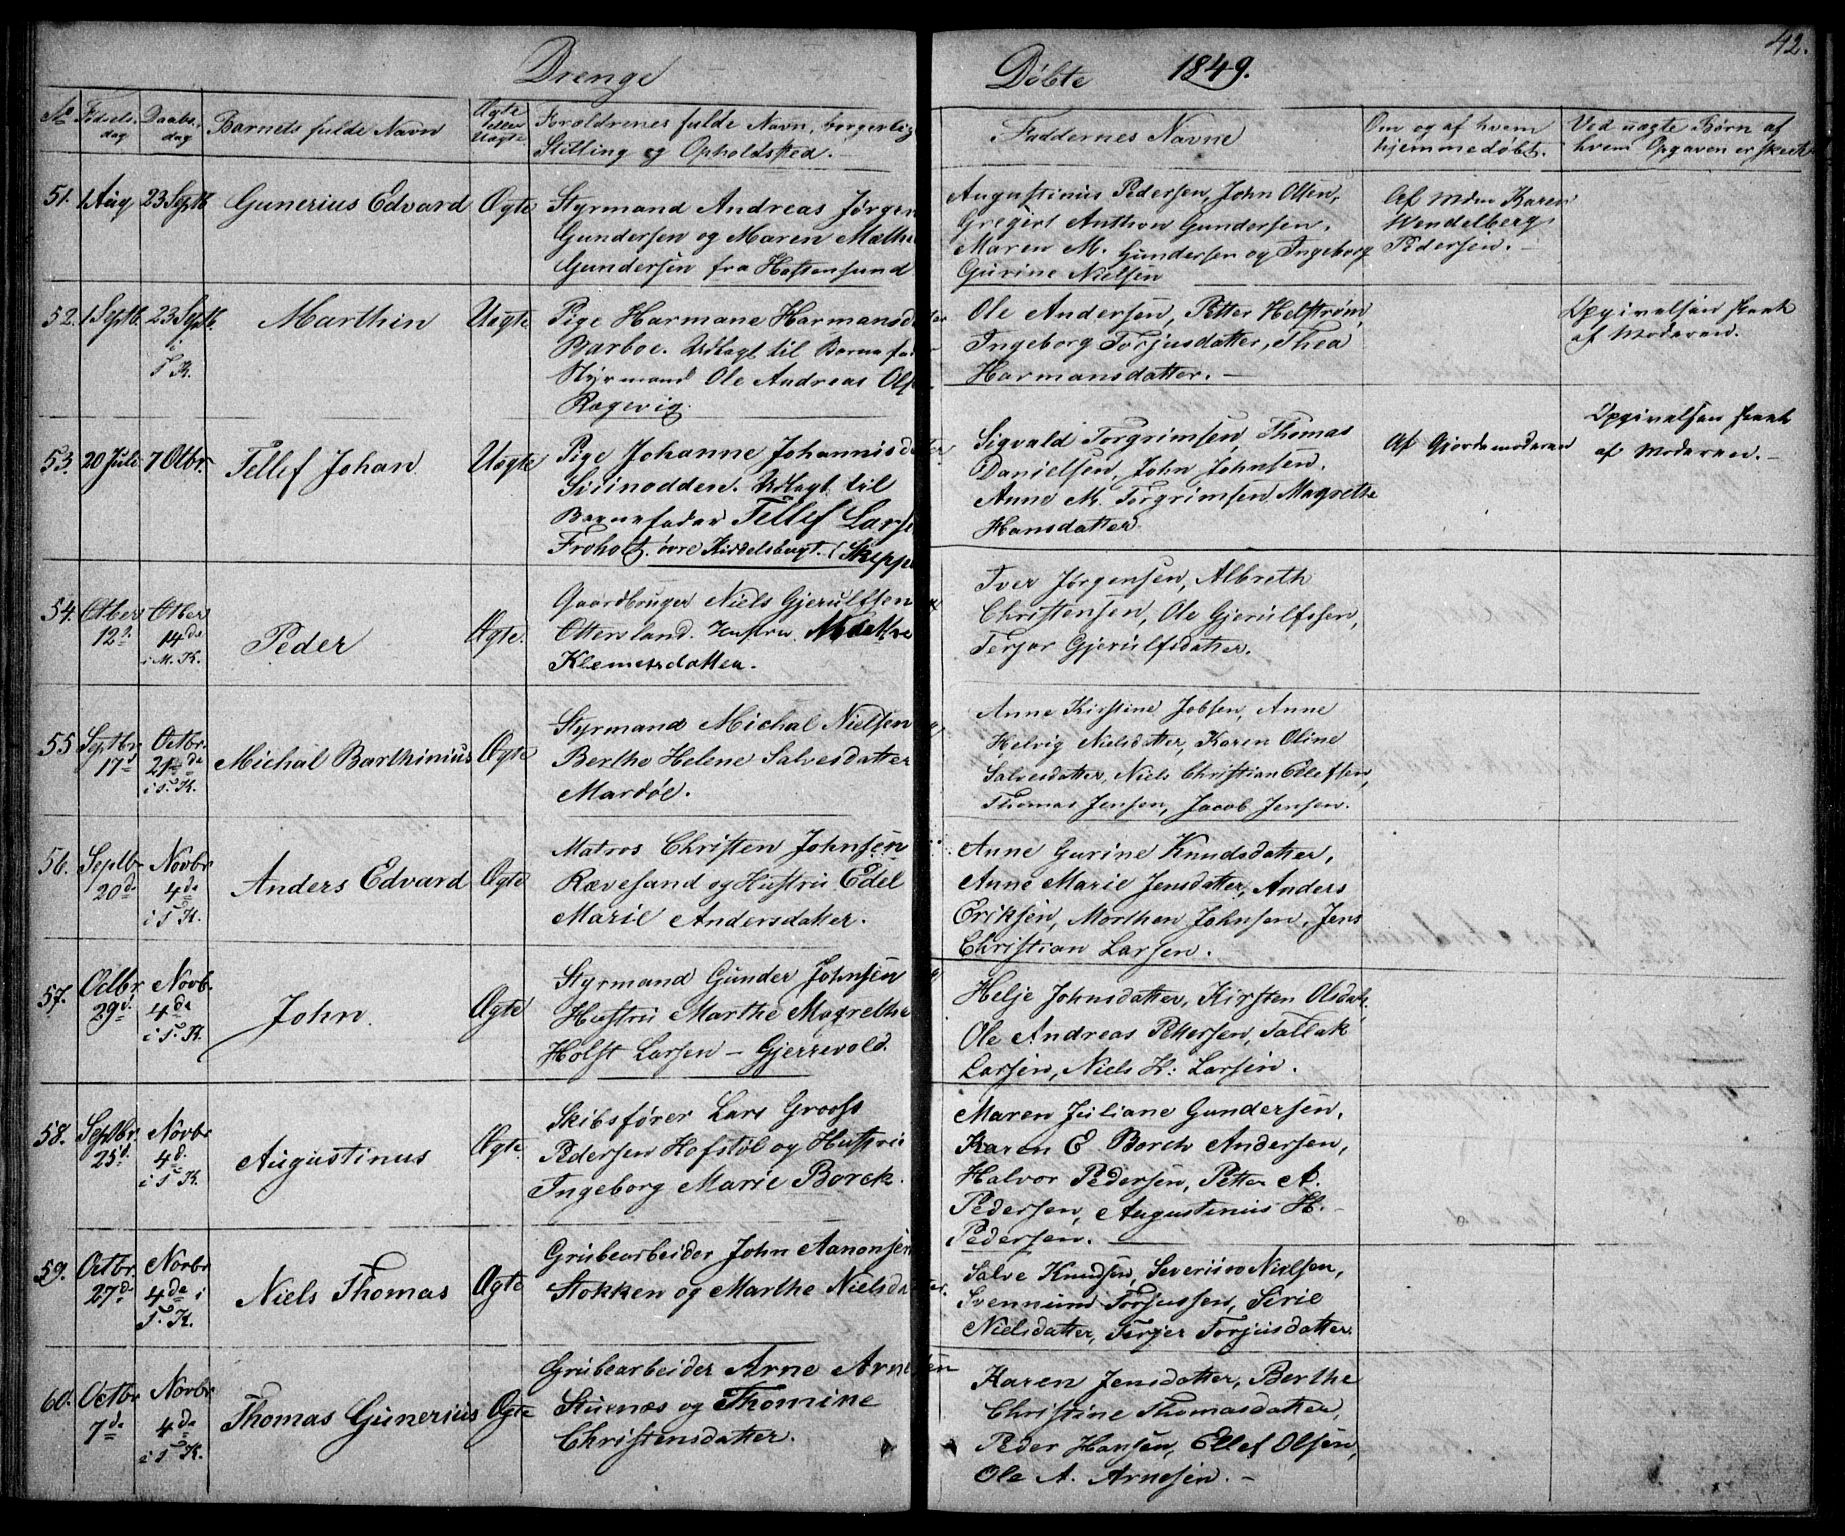 42.
Drenge
Døbte 1849.
No Fødsels- dag Daabs- dag Barnets fulde Navn Ægte eller Uægte Forældrenes fulde Navn, borgerlig Stilling og Opholdsted. Faddernes Navne Om og af hvem hjemmedøbt. Ved uægte Børn af hvem Opgaven er skeet
51. 1 Aug 23 Septb Gunerius Edvard Ægte
Styrmand Andreas Jørgen
Gundersen og Maren Malthe
Gundersen fra Hassensund
Augustinus Pedersen, John Olsen,
Gregert Anthon Gundersen,
Maren M. Gundersen og Ingeborg
Gurine Nielsen
Af Mdm Karen
Wendelberg
Pedersen.
52. 1 Septb. 23 Septb. i T. K. Marthin Uægte
Pige Harmane Harmansdatter
Barboe. Udlagt til Barnefader
Styrmand Ole Andreas Olsen
Rægevig.
Ole Andersen, Petter Helstrøm,
Ingeborg Torjusdatter, Thea
Harmansdatter. —
Opgivelsen skeet
af Moderen.
53. 20 Juli 7 Otbr. Tellef Johan Uægte
Pige Johanne Johannisdatter
Sviinodden. Udlagt til
Barnefader Tellef Larsen
Froholt. øvre Kiddelsbugt. (Skipper
Sigvald Torgrimsen, Thomas
Danielsen, John Johnsen.
Anne M. Torgrimsen Magrethe
Hansdatter.
Af Gjordemoderen
Opgivelsen skeet
af Moderen. —
54. Otber 12. Otber 14de i M. K. Peder Ægte.
Gaardbruger Niels Gjerulfsen
Ottersland. Hustru
Klemetsdatter.
Iver Jørgensen, Albreth
Christensen, Ole Gjerulfsen,
Terjer Gjerulfsdatter.
55 Septbr. 17d Octbr. 21de i T. K. Michal Barthinius Ægte
Styrmand Michal Nielsen
Berthe Helene Salvesdatter
Mardøe.
Anne Kirstine Jobsen, Anne
Helvig Nielsdatter, Karen Oline
Salvesdatter, Niels Christian Ellefsen,
Thomas Jensen, Jacob Jensen.
56. Septbr 20d Novbr 4de i T. K. Anders Edvard Ægte
Matros Christen Johnsen
Rævesand og Hustru Edel
Marie Andersdatter.
Anne Gurine Knudsdatter,
Anne Marie Jensdatter, Anders
Eriksen, Morthen Johnsen, Jens
Christian Larsen.
57. Octbr 29d Novb. 4de i T. K. John. Ægte
Styrmand Gunder Johnsen
Hustru Marthe Magrethe
Holst Larsen — Gjerrevold.
Helje Johnsdatter, Kirsten Olsdatr.
Ole Andreas Pettersen, Tallak
Larsen, Niels H: Larsen.
58. Septbr. 25d. Novbr 4d. i T. K. Augustinus Ægte.
Skibsfører Lars Grooss
Pedersen Hofstøl og Hustru
Ingeborg Marie Borck.
Maren Juliane Gundersen,
Karen E Borck Andersen,
Halvor Pedersen, Petter A.
Pedersen, Augustinus H.
Pedersen.
59. Octbr. 27d Novbr 4de i T. K. Niels Thomas Ægte
Grubearbeider John Aanonsen
Stokken og Marthe Nielsdatter.
Salve Knudsen, Severin Nielsen,
Svennund Torjussen, Sirie
Nielsdatter, Terjer Torjusdatter.
60. Octbr 7de Novbr 4de i T. K. Thomas Gunerius Ægte
Grubearbeider Arne Arnesen
Stuenæs og Thomine
Christensdatter.
Karen Jensdatter, Berthe
Christine Thomasdatter,
Peder Hansen, Ellef Olsen,
Ole A. Arnesen. —